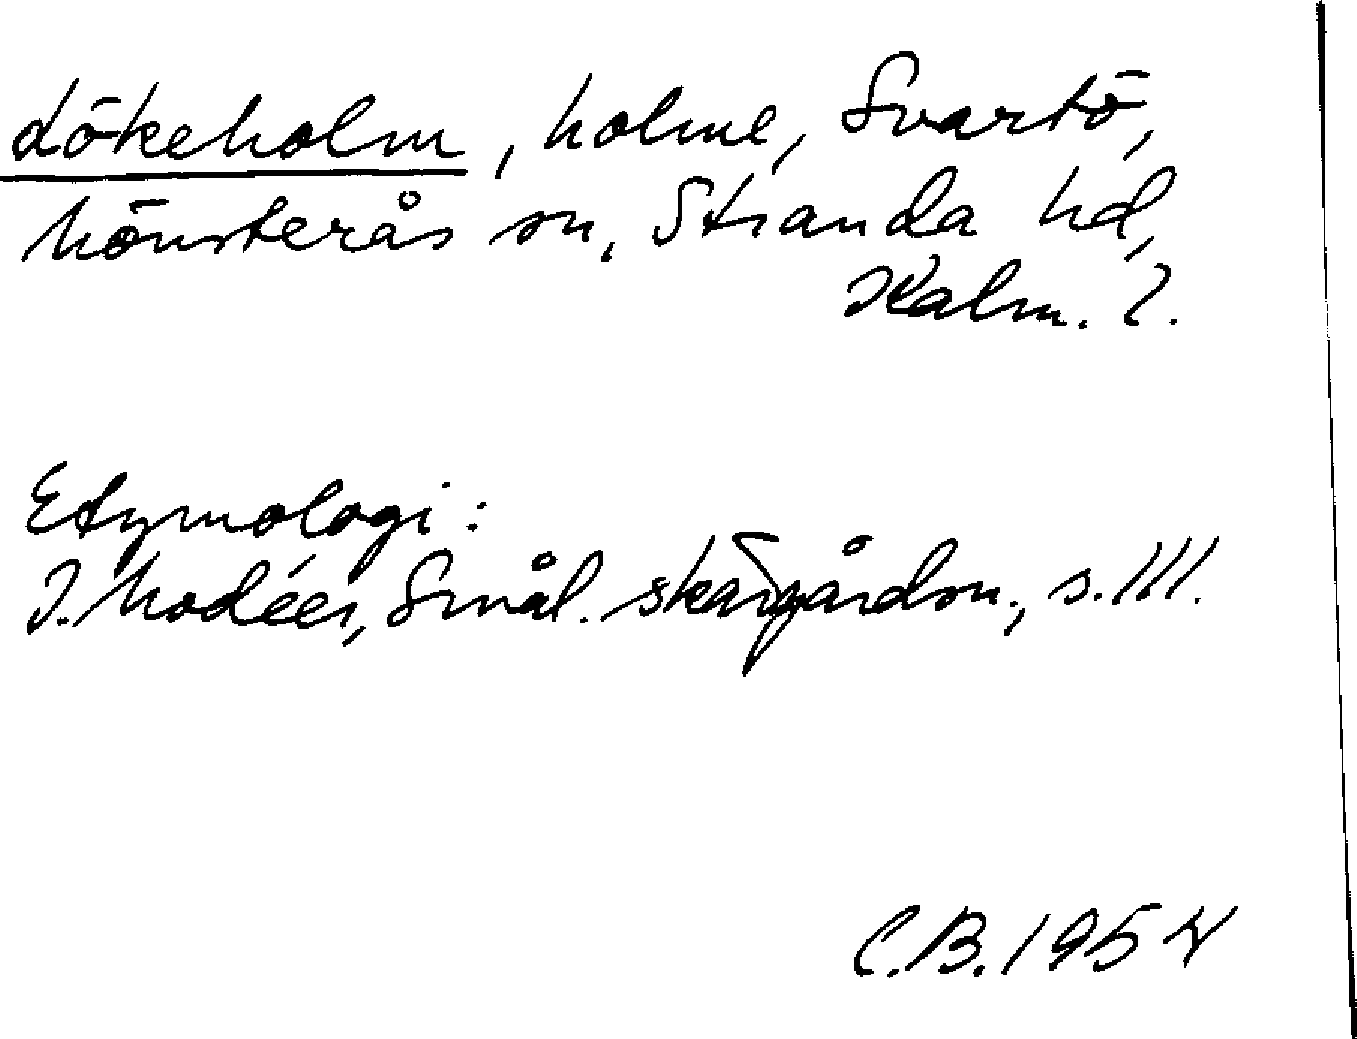 Lökeholm, holme, Svartö,
Mönsterås sn, Stranda hd,
Kalm. l.
Etymologi:
I. Modéer, Smål. skärgårdsn., s. 111.
C.B. 1954